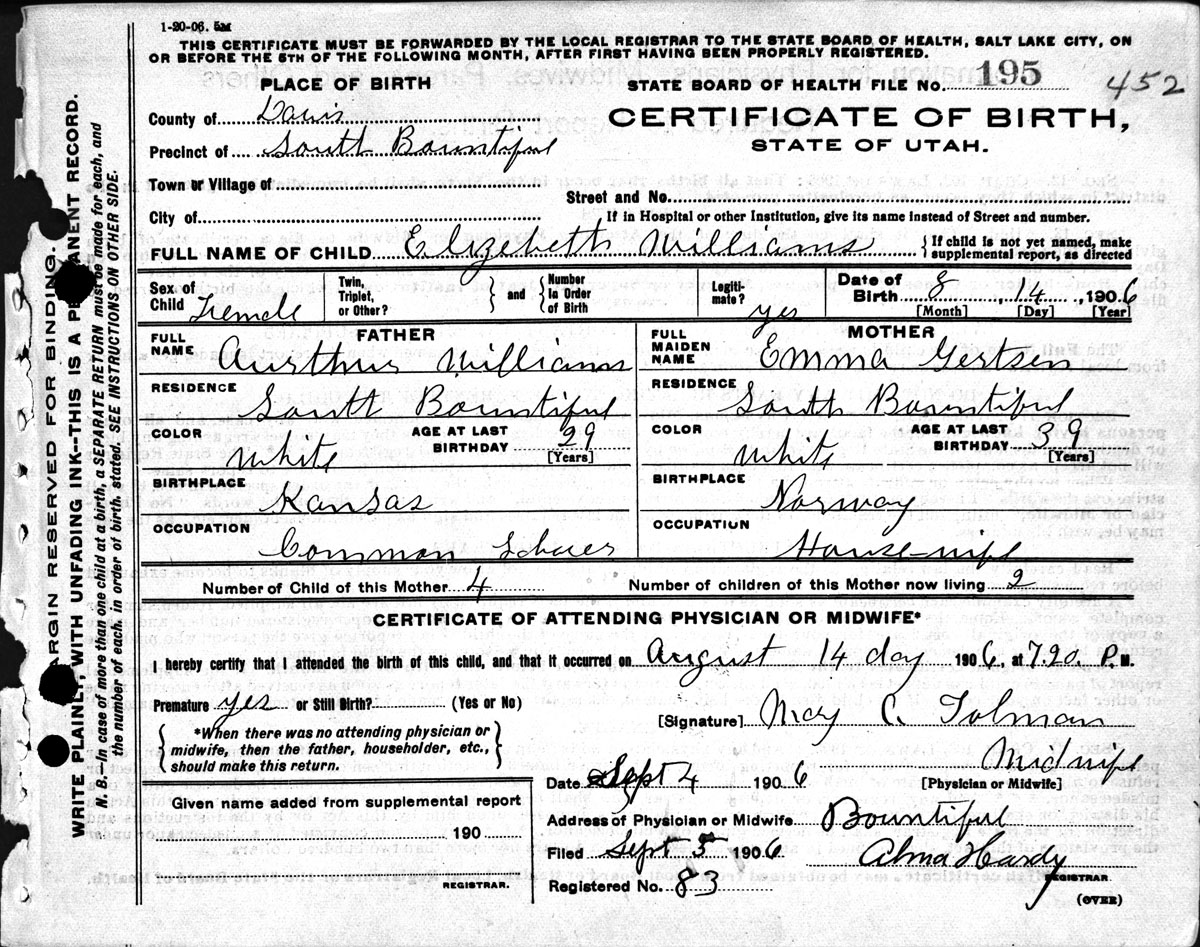 1-20-06. 5M
THIS CERTIFICATE MUST BE FORWARDED BY THE LOCAL REGISTRAR TO THE STATE BOARD OF HEALTH, SALT LAKE CITY, ON
OR BEFORE THE 5TH OF THE FOLLOWING MONTH, AFTER FIRST HAVING BEEN PROPERLY REGISTERED.
PLACE OF BIRTH
STATE BOARD OF HEALTH FILE NO. 195 452
County of Davis
CERTIFICATE OF BIRTH,
Precinct of South Bountiful
STATE OF UTAH.
Town or Village of
Street and No.
City of
If in Hospital or other Institution, give its name instead of Street and number.
FULL NAME OF CHILD Elizebeth Williams { If child is not yet named, make supplemental report, as directed
Sex of Child Female Twin, Triplet, or Other? } and { Number In Order of Birth Legiti-mate? yes Date of Birth 8 14, 1906 [Month] [Day] [Year]
FATHER
MOTHER
FULL NAME Aurthur Williams
FULL MAIDEN NAME Emma Gertsen
RESIDENCE South Bountiful
RESIDENCE South Bountiful
COLOR White AGE AT LAST BIRTHDAY 29 [Years]
COLOR White AGE AT LAST BIRTHDAY 39 [Years]
BIRTHPLACE Kansas
BIRTHPLACE Norway
OCCUPATION Common
OCCUPATION House-wife
Number of Child of this Mother 4 Number of children of this Mother now living 2
CERTIFICATE OF ATTENDING PHYSICIAN OR MIDWIFE*
I hereby certify that I attended the birth of this child, and that it occurred on August 14 day 1906, at 7.20 P. M.
Premature yes or Still Birth? (Yes or No)
[Signature] May C. Tolman
{ *When there was no attending physician or
midwife, then the father, householder, etc.,
should make this return. }
Midwife
[Physician or Midwife]
Date Sept 4 1906
Given name added from supplemental report
190
REGISTRAR.
Address of Physician or Midwife Bountiful
Filed Sept 5 1906 Alma Hardy
REGISTRAR.
Registered No. 83
(OVER)
MARGIN RESERVED FOR BINDING.
WRITE PLAINLY, WITH UNFADING INK--THIS IS A PERMANENT RECORD.
N. B.--In case of more than one child at a birth, a SEPARATE RETURN must be made for each, and
the number of each, in order of birth, stated. SEE INSTRUCTIONS ON OTHER SIDE.